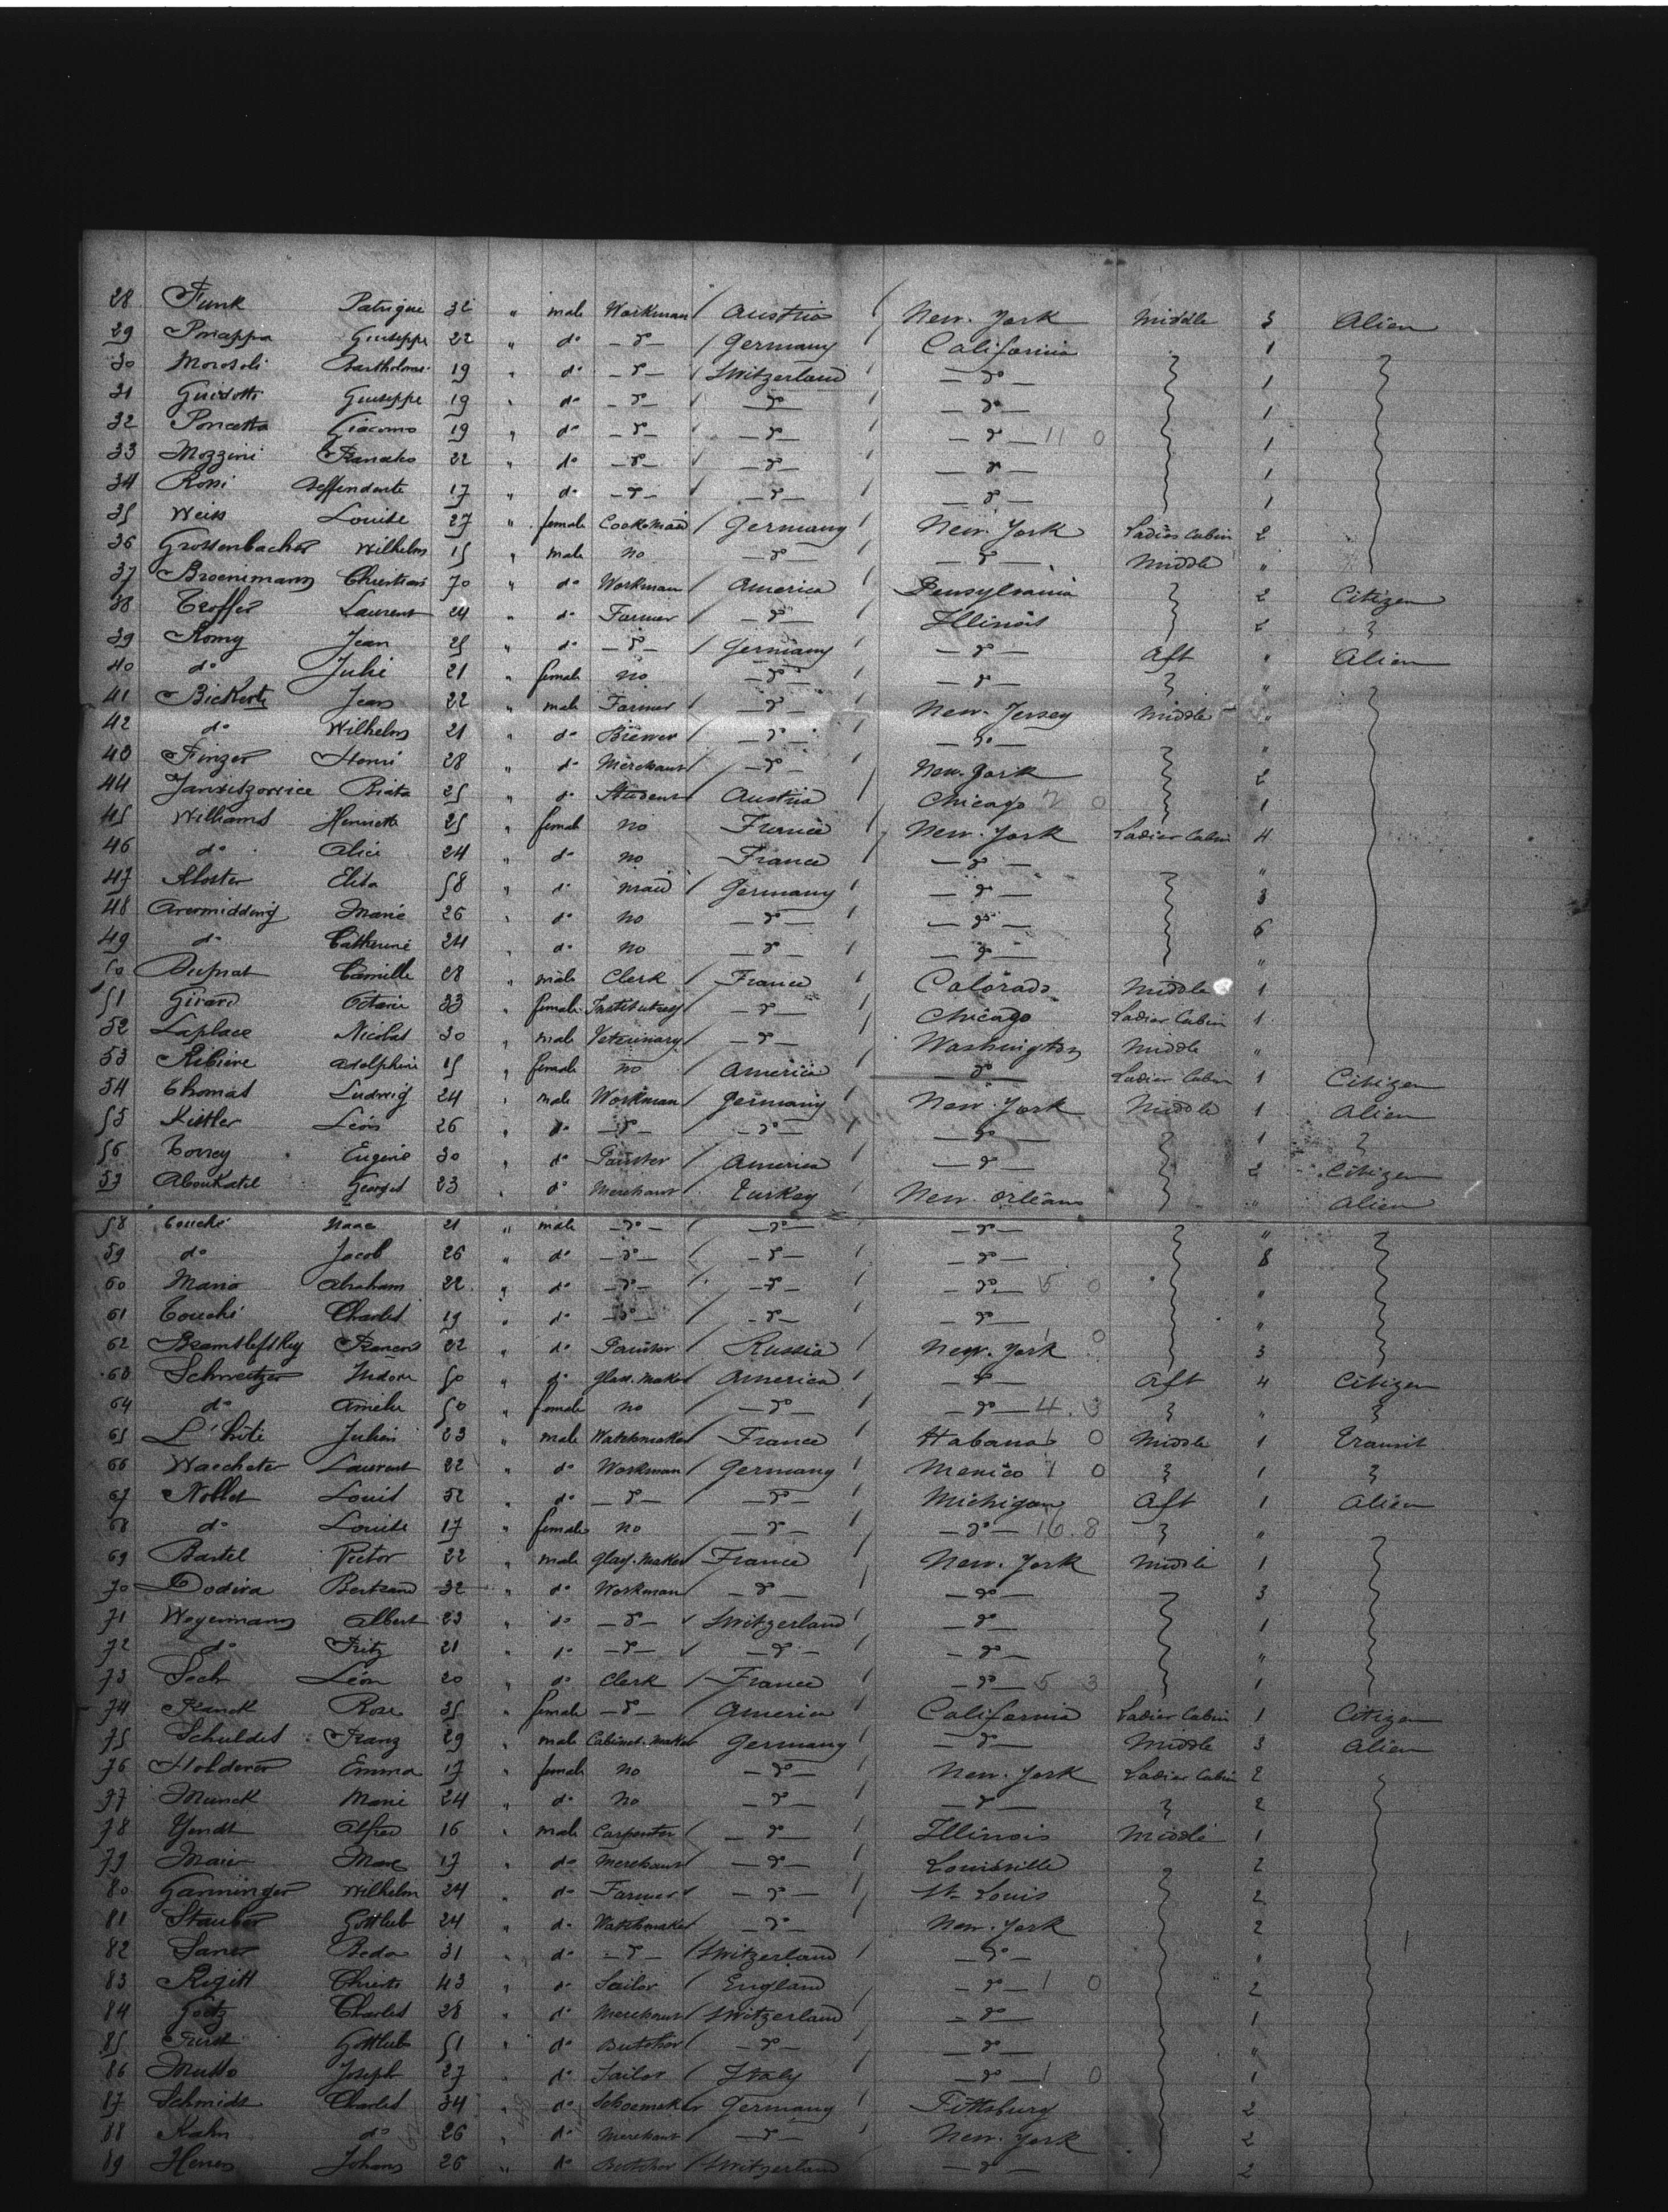 28 Funk Patrique 32 " male Workman Austria New-York Middle 3 Alien
29 Giuseppe 22 " do -do- Germany California 1
30 Morosoli Bartholome 19 " do -do- Switzerland -do- 1
31 Guidotti Giuseppe 19 " do -do- -do- -do- 1
32 Poncetta Giacomo 19 " do -do- -do- -do- 11 0 1
33 Mozzini 22 " do -do- -do- -do- 1
34 Rossi Deffendente 17 " do -do- -do- -do- 1
35 Weiss Louise 27 " female Germany New-York Ladies Cabin 2
36 Grossenbacher Wilhelm 15 " male no -do- -do- Middle "
37 Broenimann Christian 70 " do Workman America Pensylvania 2 Citizen
38 Troffer Laurent 24 " do Farmer -do- Illinois 2
39 Romy Jean 25 " do -do- Germany -do- Aft " Alien
40 do Julie 21 " female no -do- -do- "
41 Bickert Jean 22 " male Farmer -do- New-Jersey Middle "
42 do Wilhelm 21 " do Brewer -do- -do- "
43 Finzer Henri 28 " do Merchant -do- New-York 2
44 25 " do Student Austria Chicago 2 0 1
45 Williams Henriette 25 " female no France New-York Ladies Cabin 4
46 do Alice 24 " do no France -do- "
47 Kloster Elisa 58 " do maid Germany -do- 3
48 Marie 26 " do no -do- -do- 6
49 do Catherine 24 " do no -do- -do- "
50 Duprat Camille 28 " male Clerk France Colorado Middle 1
51 Girard Octavie 33 " female -do- Chicago Ladies Cabin 1
52 Laplace Nicolas 30 " male Veterinary -do- Washington Middle "
53 Ribière Adolphine 15 " female no America -do- Ladies Cabin 1 Citizen
54 Thomas Ludwig 24 " male Workman Germany New-York Middle 1 Alien
55 Kistler Léon 26 " do -do- -do- -do- 1
56 Torrey Eugène 30 " do Painter America -do- 2 Citizen
57 Aboukalil Georges 23 " do Merchant Turkey New-Orléans " Alien
58 Couché Isaac 21 " male -do- -do- -do- "
59 do Jacob 26 " do -do- -do- -do- 8
60 Maria Abraham 22 " do -do- -do- -do- 5 0 "
61 Couché Charles 19 " do -do- -do- -do- "
62 François 22 " do Painter Russia New-York 1 0 3
63 Schweitzer Isidore 50 " do Glass-maker America -do- Aft 4 Citizen
64 do Amélie 50 " female no -do- -do- 4.3 "
65 L'hôte Julien 23 " male Watchmaker France Habana 1 0 Middle 1 Transit
66 Waechter Laurent 22 " do Workman Germany Mexico 1 0 1
67 Noblet Louis 52 " do -do- -do- Michigan Aft 1 Alien
68 do Louise 17 " female no -do- -do- 16.8 "
69 Bastel Victor 22 " male Glass-maker France New-York Middle 1
70 Dodiva Bertrand 32 " do Workman -do- -do- 3
71 Weyermann Albert 23 " do -do- Switzerland -do- 1
72 do Fritz 21 " do -do- -do- -do- "
73 Soch Léon 20 " do Clerk France -do- 5 3 1
74 Franck Rose 35 " female -do- America California Ladies Cabin 1 Citizen
75 Schuldes Franz 29 " male Cabinet-maker Germany -do- Middle 3 Alien
76 Holderer Emma 17 " female no -do- New-York Ladies Cabin 2
77 Munck Marie 24 " do no -do- -do- 2
78 Yendt Alfred 16 " male Carpenter -do- Illinois Middle 1
79 Maier Marc 17 " do Merchant -do- Louisville 2
80 Ganninger Wilhelm 24 " do Farmer -do- St-Louis 2
81 Stauber Gottlieb 24 " do Watchmaker -do- New-York 2
82 Saner Beda 31 " do -do- Switzerland -do- 1
83 43 " do Sailor England -do- 1 0 2
84 Goetz Charles 28 " do Merchant Switzerland -do- 1
85 Furst Gottlieb 51 " do Butcher -do- -do- "
86 Musso Joseph 27 " do Sailor Italy -do- 1 0 1
87 Schmidt Charles 34 " do Schoemaker Germany Pittsburg 2
88 Kahn do 26 " do Merchant -do- New-York 2
89 Johann 26 " do Butcher Switzerland -do- 2